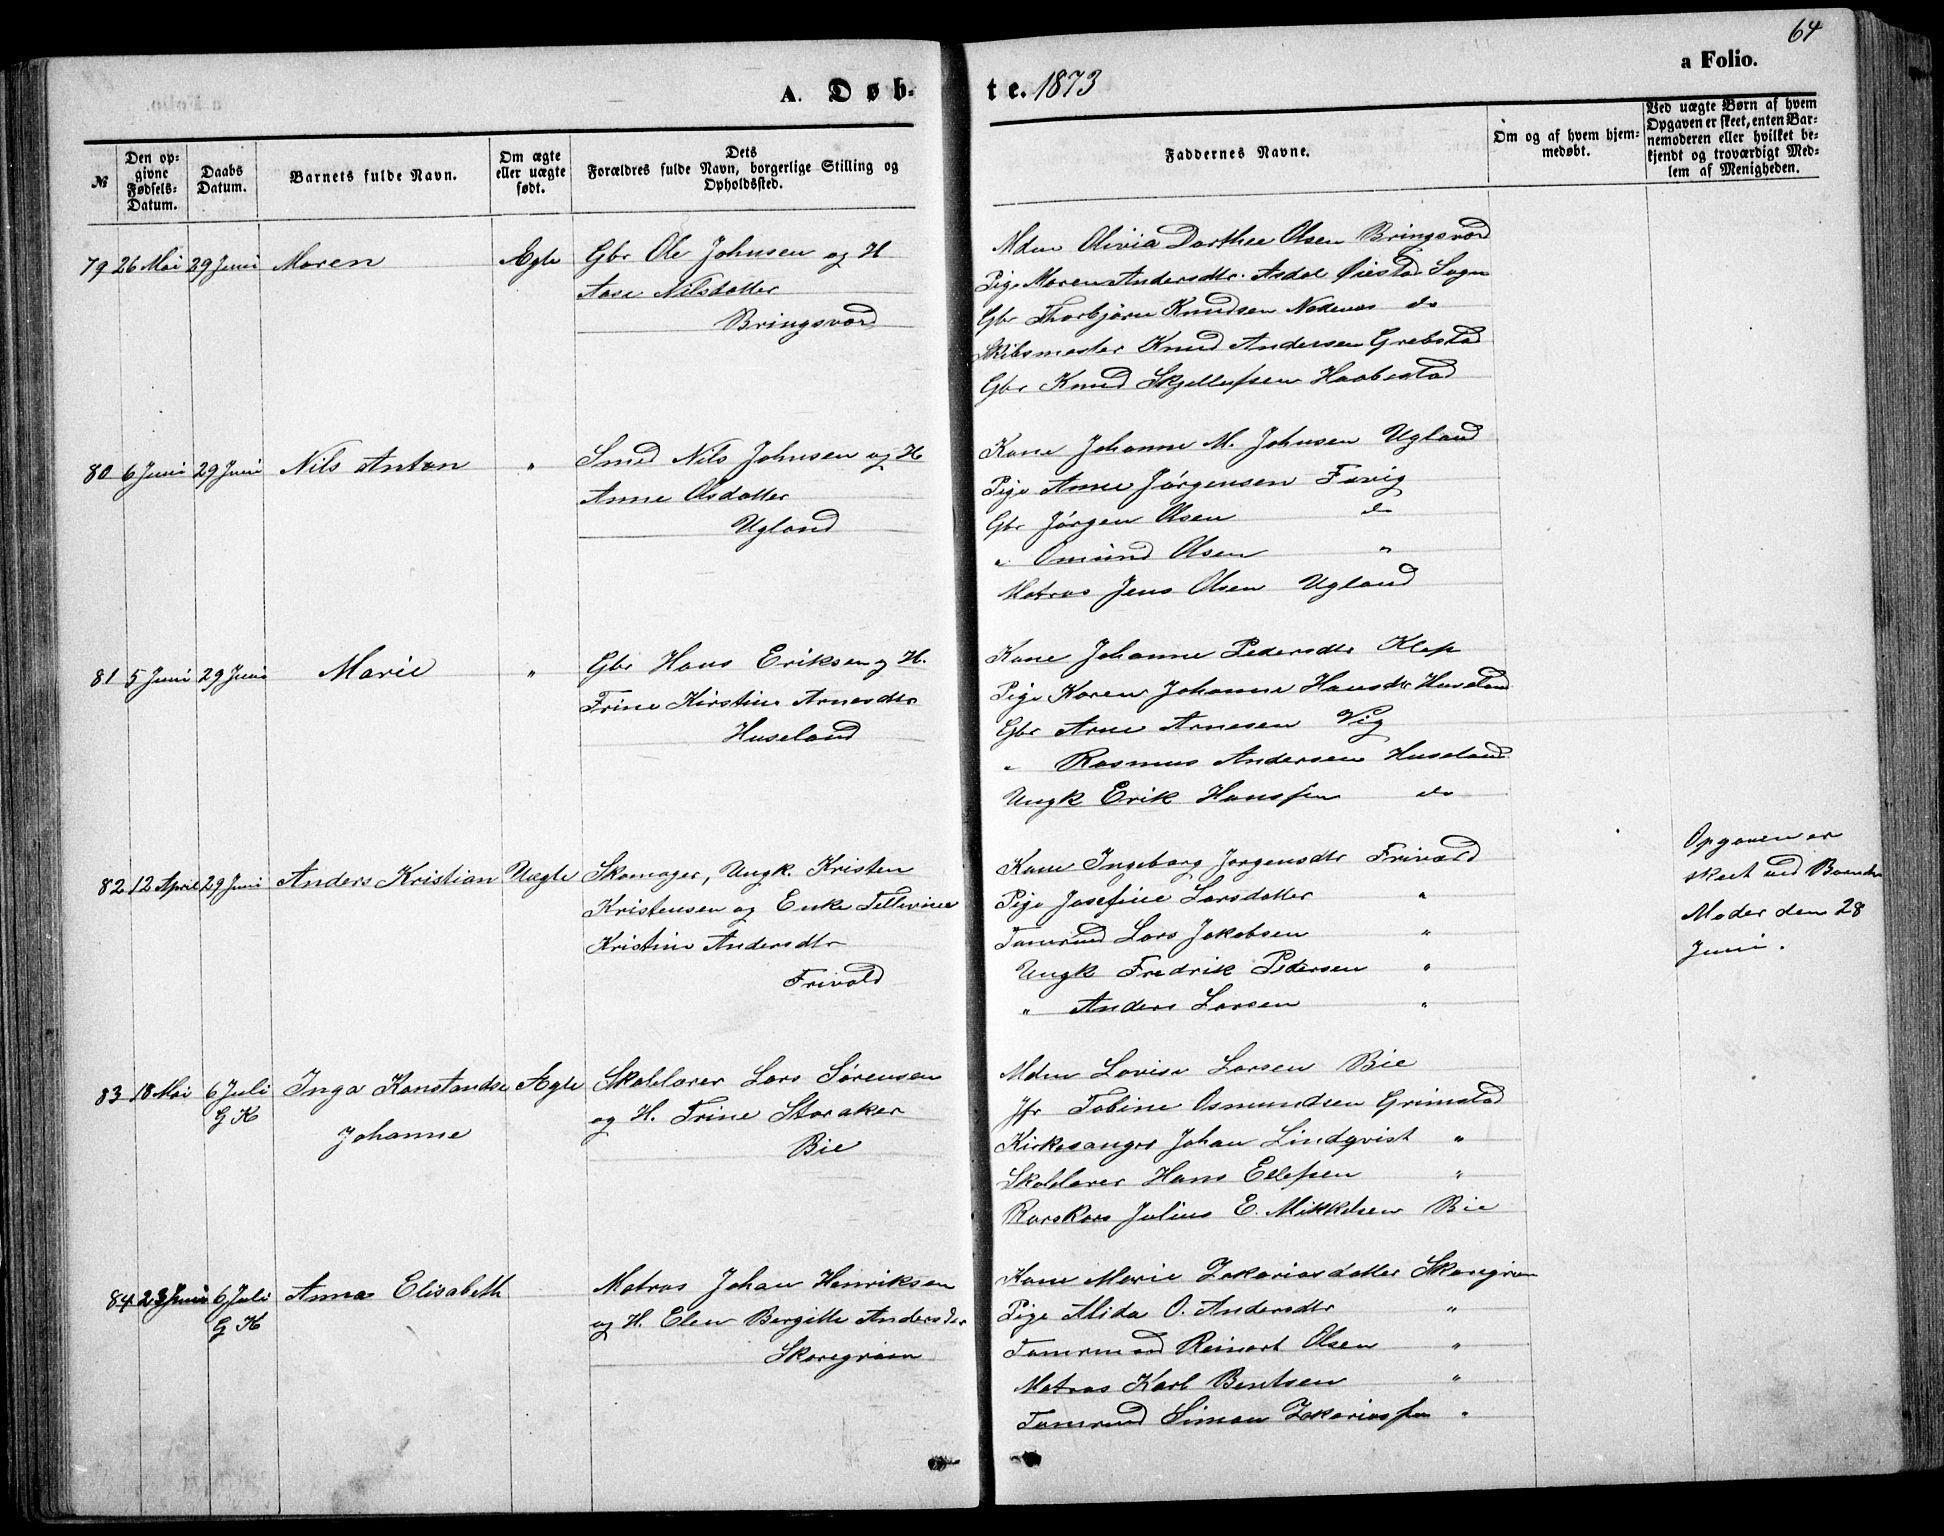 64
A. Døb-
te. 1873
a Folio.
№
Den op-
givne
Fødsels-
Datum.
Daabs
Datum.
Barnets fulde Navn.
Om ægte
eller uægte
født.
Dets
Forældres fulde Navn, borgerlige Stilling og
Opholdssted.
Faddernes Navne.
Om og af hvem hjem-
medøbt.
Ved uægte Børn af hvem
Opgaven er skeet, enten Bar-
nemoderen eller hvilket be-
kjendt og troværdigt Med-
lem af Menigheden.
79 26 Mai 29 Juni Maren Ægte Gbr Ole Johnsen og H
Aase Nilsdatter
Bringsvær
Mdm Olivia Dorthee Olsen Bringsvær
Pige Maren Andersdtr. Asdal Øiestad Sogn
Gbr Thorbjørn Knudsen Nedenæs do
Skibsmester Knud Andersen Grebstad
Gbr Knud Skjellefsen Haabestad
80 6 Juni 29 Juni Nils Anton " Smed Nils Johnsen og H
Anne Olsdatter
Ugland
Kone Johanne M. Johnsen Ugland
Pige Anne Jørgensen Fævig
Gbr Jørgen Olsen do
" Omund Olsen "
Matros Jens Olsen Ugland
81 5 Juni 29 Juni Marie " Gbr Hans Eriksen og H.
Trine Kirstine Arnesdtr
Huseland
Kone Johanne Pedersdtr Klep
Pige Karen Johanne Hansdtr Huseland
Gbr Arne Arnesen Vig
" Rasmus Andersen Huseland
Ungk Erik Hanssen do
82 12 April 29 Juni Anders Kristian Uægte Skomager, Ungk. Kristen
Kristensen og Enke Tellevine
Kristine Andersdtr
Frivold
Kone Ingeborg Jørgensdtr Frivold
Pige Josefine Larsdatter "
Tømrmd Lars Jakobsen "
Ungk Fredrik Pedersen "
" Anders Larsen "
Opgaven er
skeet ved Barnets
Moder den 28
Juni.
83 18 Mai 6 Juli Inga Konstandse Ægte Skolelærer Lars Sørensen
G K
Johanne
og H. Trine Storaker
Bie
Mdm Lovise Larsen Bie
Jfr Tobine Osmundsen Grimstad
Kirkesanger Johan Lindqvist "
Skolelærer Hans Ellefsen "
Julius E. Mikkelsen Bie
84 23 Juni 6 Juli Anna Elisabeth
G K
Matros Johan Henriksen
og H. Elen Bergitte Andersdtr
Skaregrøm
Kone Marie Zakariasdatter Skaregrøm
Pige Alida O. Andersdtr "
Tømrmand Reinert Olsen "
Matros Karl Bentsen "
Tømrmd Simon Zakariassen "